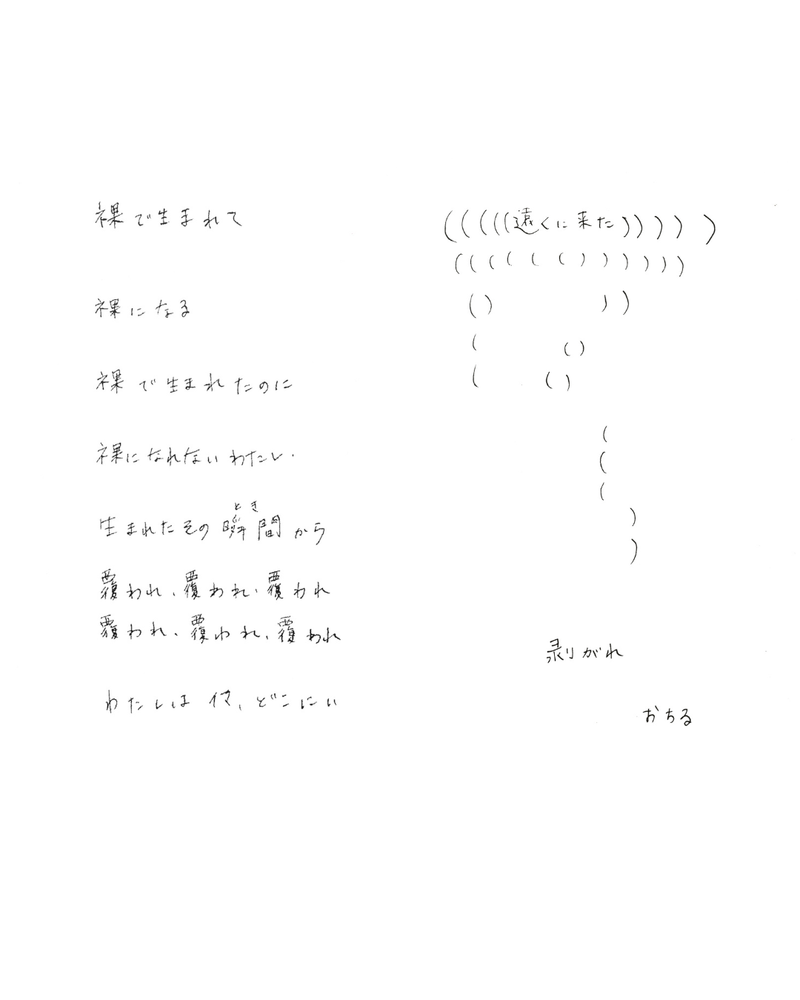 裸で生まれて
裸になる
裸で生まれたのに
裸になれないわたし.
とき
生まれたその瞬間から
覆われ、覆われ、覆われ
覆われ、覆われ、覆われ
わたしは 、どこにい
(((((遠くに来た)))))
((((((())))))
() ))
( ()
( ()
(
(
(
)
)
剥がれ
おちる